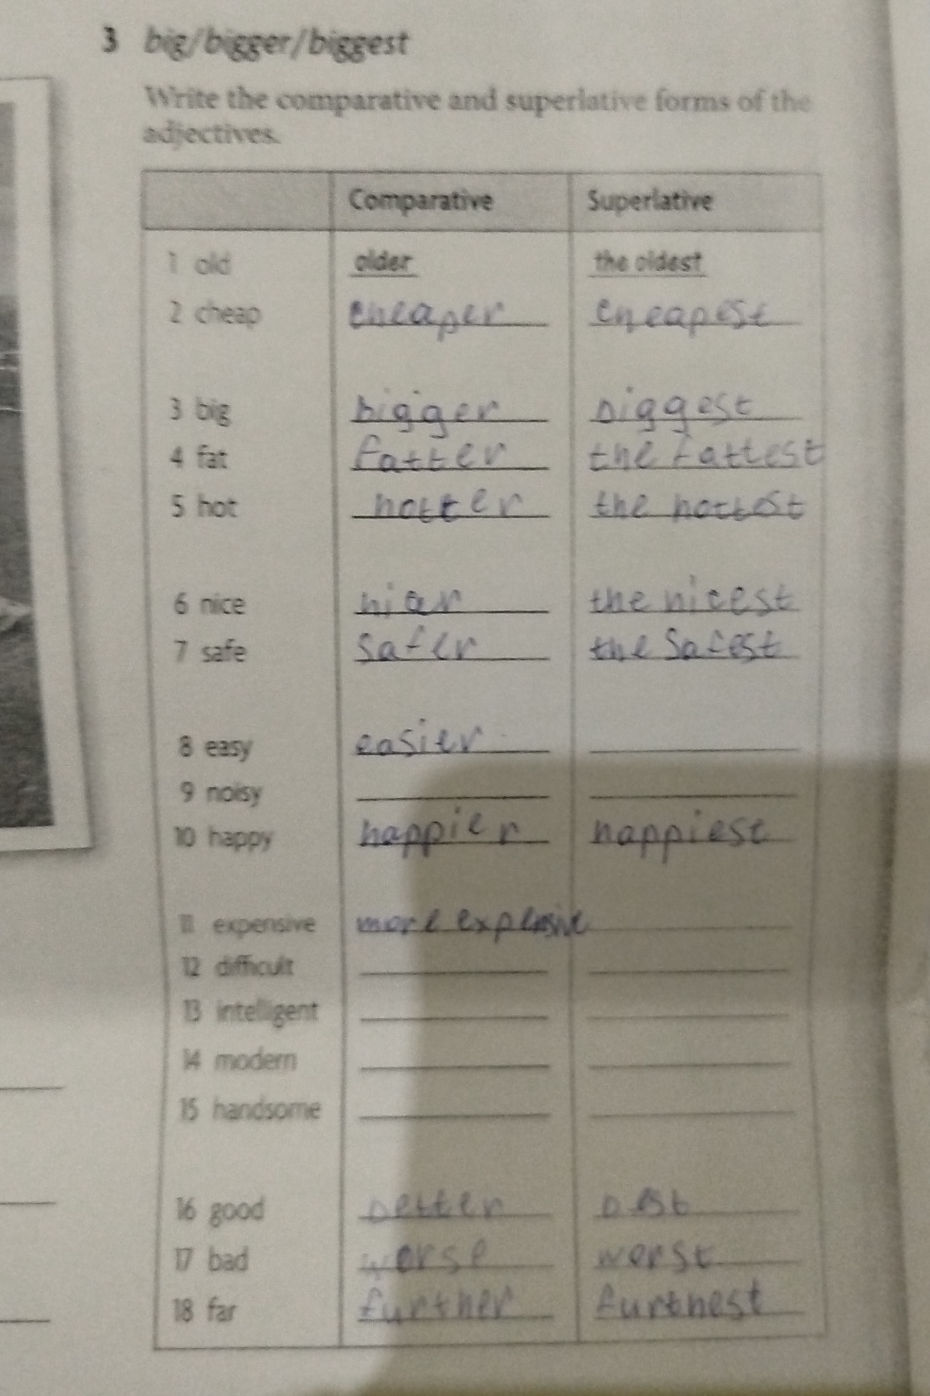 3 big/bigger/biggest
Write the comparative and superlative forms of the
adjectives.
Comparative Superlative
1 old older the oldest
2 cheap cheaper cheapest
3 big bigger biggest
4 fat fatter the fattest
5 hot hotter the hottest
6 nice nicer the nicest
7 safe safer the safest
8 easy easier
9 noisy
10 happy happier happiest
11 expensive more expensive
12 difficult
13 intelligent
14 modern
15 handsome
16 good better best
17 bad worse worst
18 far further furthest